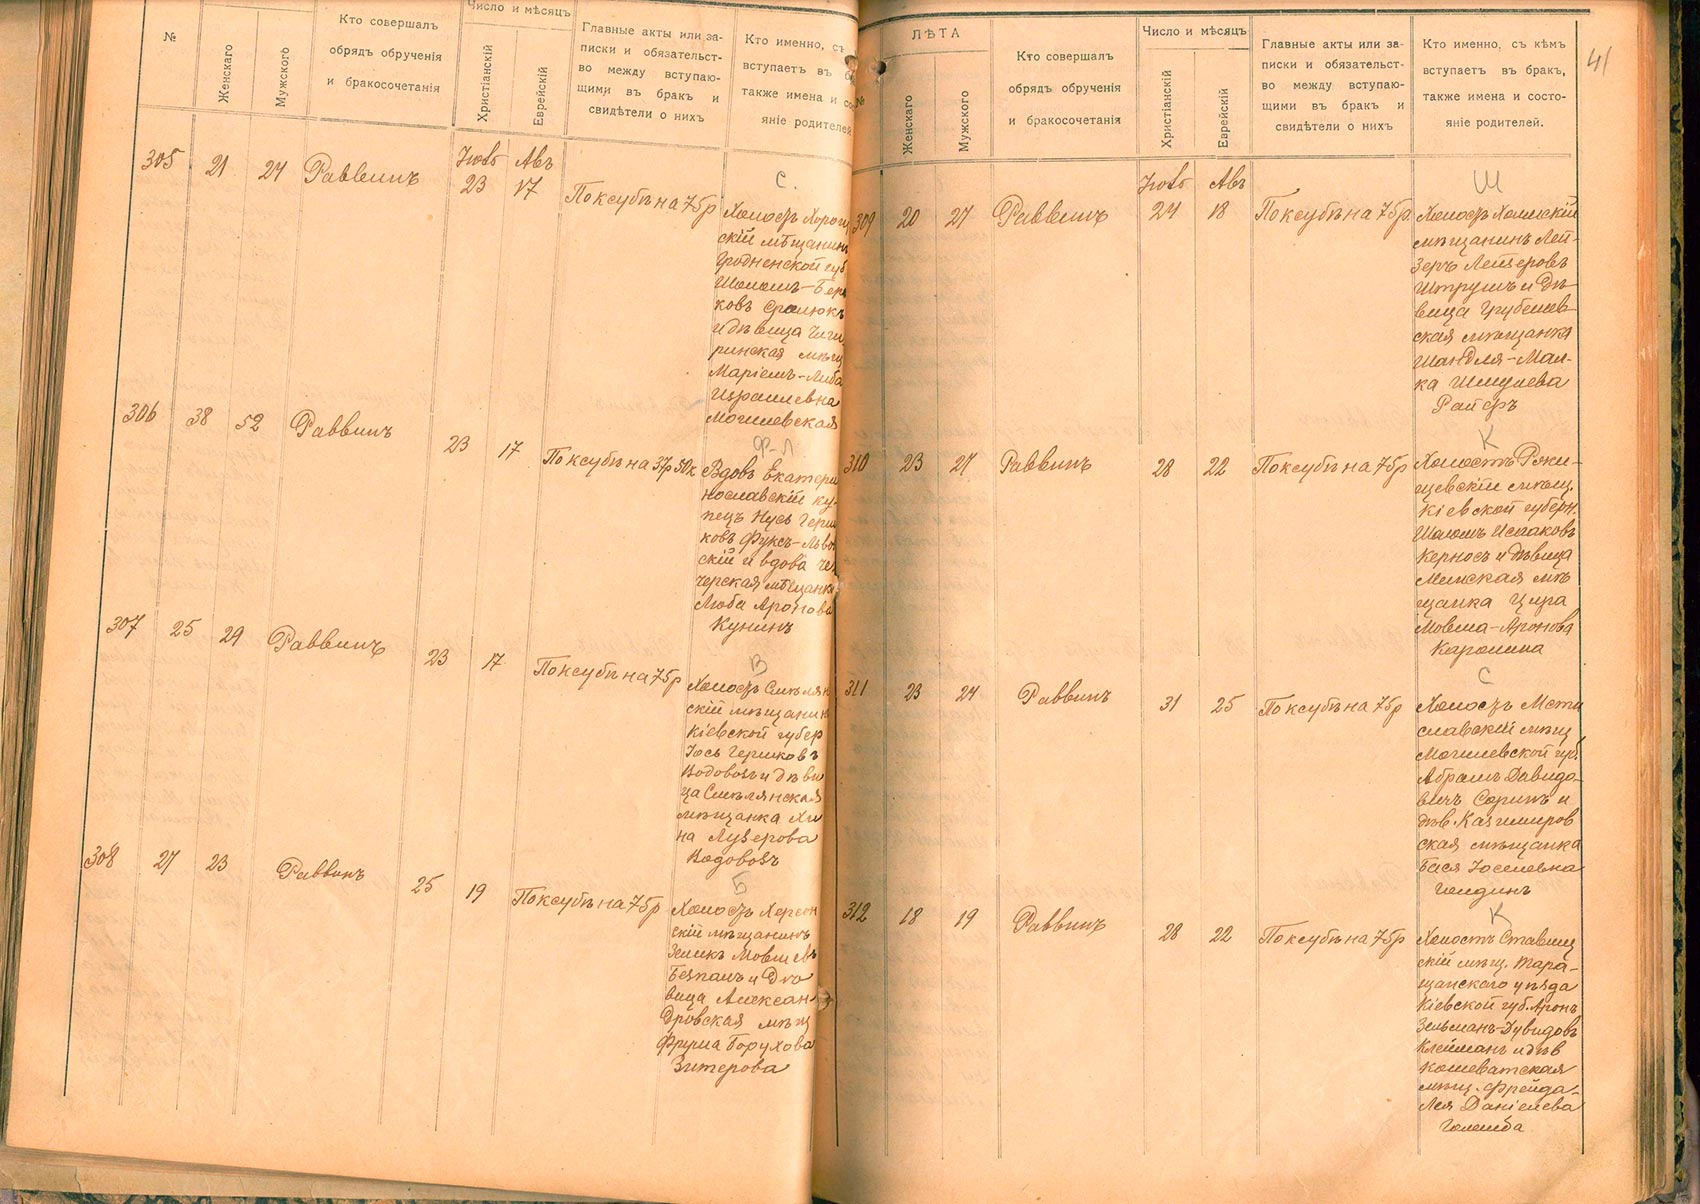 №
Женскаго
Мужского
Кто совершалъ
обрядъ обрученія
и бракосочетанія
Число и мѣсяцъ
Христіанскій
Еврейскій
Главные акты или за-
писки и обязательст-
во между вступаю-
щими въ бракъ и
свидѣтели о нихъ
Кто именно, съ
вступаетъ въ
также имена и
яніе родителей
305 21 24 Раввинъ
Авъ
23 17
По ксубѣ на 75 р
С.
Холостъ
скій мѣщанинъ
Гродненской губ
Шоломъ-
ковъ
и дѣвица
ринская мѣщ
Маріемъ-Либа
Израилевна
Могилевская
306 38 52 Раввинъ 23 17 По ксубѣ на 37р 50к
Ф-Л
Вдовъ Екатери
нославскій ку-
пецъ Нусь
ковъ Фуксъ-Львов
скій и вдова
черская мѣщанка
Люба Аронова
Кунинъ
307 25 29 Раввинъ 23 17 По ксубѣ на 75 р
В
Холостъ Смѣлян
скій мѣщанин
Кіевской губер
Іось Гершковъ
Водовозъ и дѣви
ца Смѣлянская
мѣщанка
на Лузерова
Водовозъ
308 27 23 Раввинъ 25 19 По ксубѣ на 75 р
Б
Холостъ Херсон
скій мѣщанинъ
Зеликъ
Безпалъ и Дѣ
вица Алексан
дровская мѣщ
Фрума Борухова
Зитерова
41
№
ЛѢТА
Женскаго
Мужского
Кто совершалъ
обрядъ обрученія
и бракосочетанія
Число и мѣсяцъ
Христіанскій
Еврейскій
Главные акты или за-
писки и обязательст-
во между вступаю-
щими въ бракъ и
свидѣтели о нихъ
Кто именно, съ кѣмъ
вступаетъ въ бракъ,
также имена и состо-
яніе родителей.
Авъ
309 20 27 Раввинъ 24 18 По ксубѣ на 75 р.
Ш
Холостъ Холмскій
мѣщанинъ Лей-
зеръ Лейзеровъ
Штрумъ и Дѣ-
вица Грубешев-
ская мѣщанка
Шандля-Мал-
ка Шмулева
Райфъ
310 23 27 Раввинъ 28 22 По ксубѣ на 75 р
К
Холостъ Ржи-
щевскій мѣщ.
Кіевской губерн.
Шоломъ Исааковъ
Керносъ и дѣвица
Минская мѣ
щанка Цира
Мовша-Аронова
Каролина
311 23 24 Раввинъ 31 25 По ксубѣ на 75 р
С
Холостъ Мсти
славскій мѣщ
Могилевской губ.
Абрамъ Давидо-
вичъ Соринъ и
дѣв. Казимиров
ская мѣщанка
Бася Іоселевна
Гондинъ
312 18 19 Раввинъ 28 22 По ксубѣ на 75 р
К
Холостъ Ставищ
скій мѣщ. Тара-
щанскаго уѣзда
Кіевской губ. Аронъ
Зельманъ-Дувидовъ
Клейманъ и дѣв
Кошеватская
мѣщ. Фрейда-
Лея Даніелева
Голенба